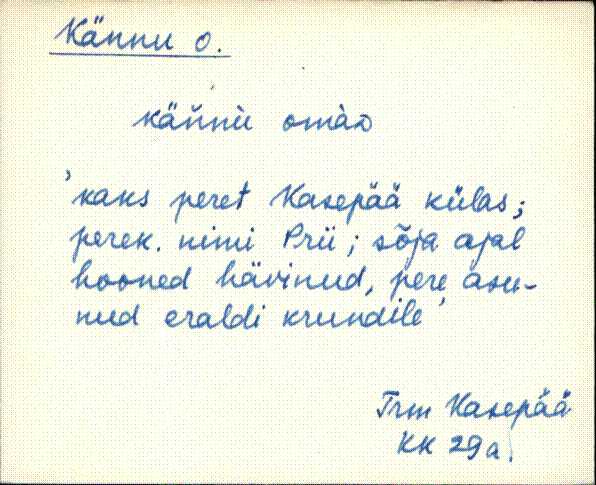 Kännu o.
kän̆nù omàɒ
'kaks peret Kasepää külas;
perek. nimi Prii; sõja ajal
hooned hävinud, pere asu-
nud eraldi krundile'
Trm Kasepää
KK 29a.